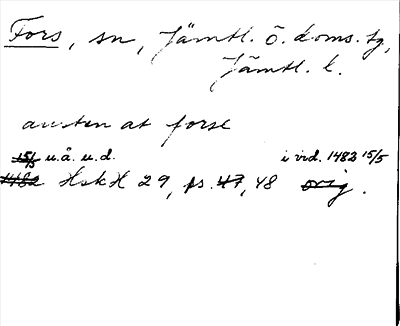 Fors, sn, Jämtl. ö. doms. tg,
Jämtl. l.
austen at forse
15/5 u.å. u.d. i vid. 1482 15/5
1482 HskH 29, ps. 47, 48 orig.